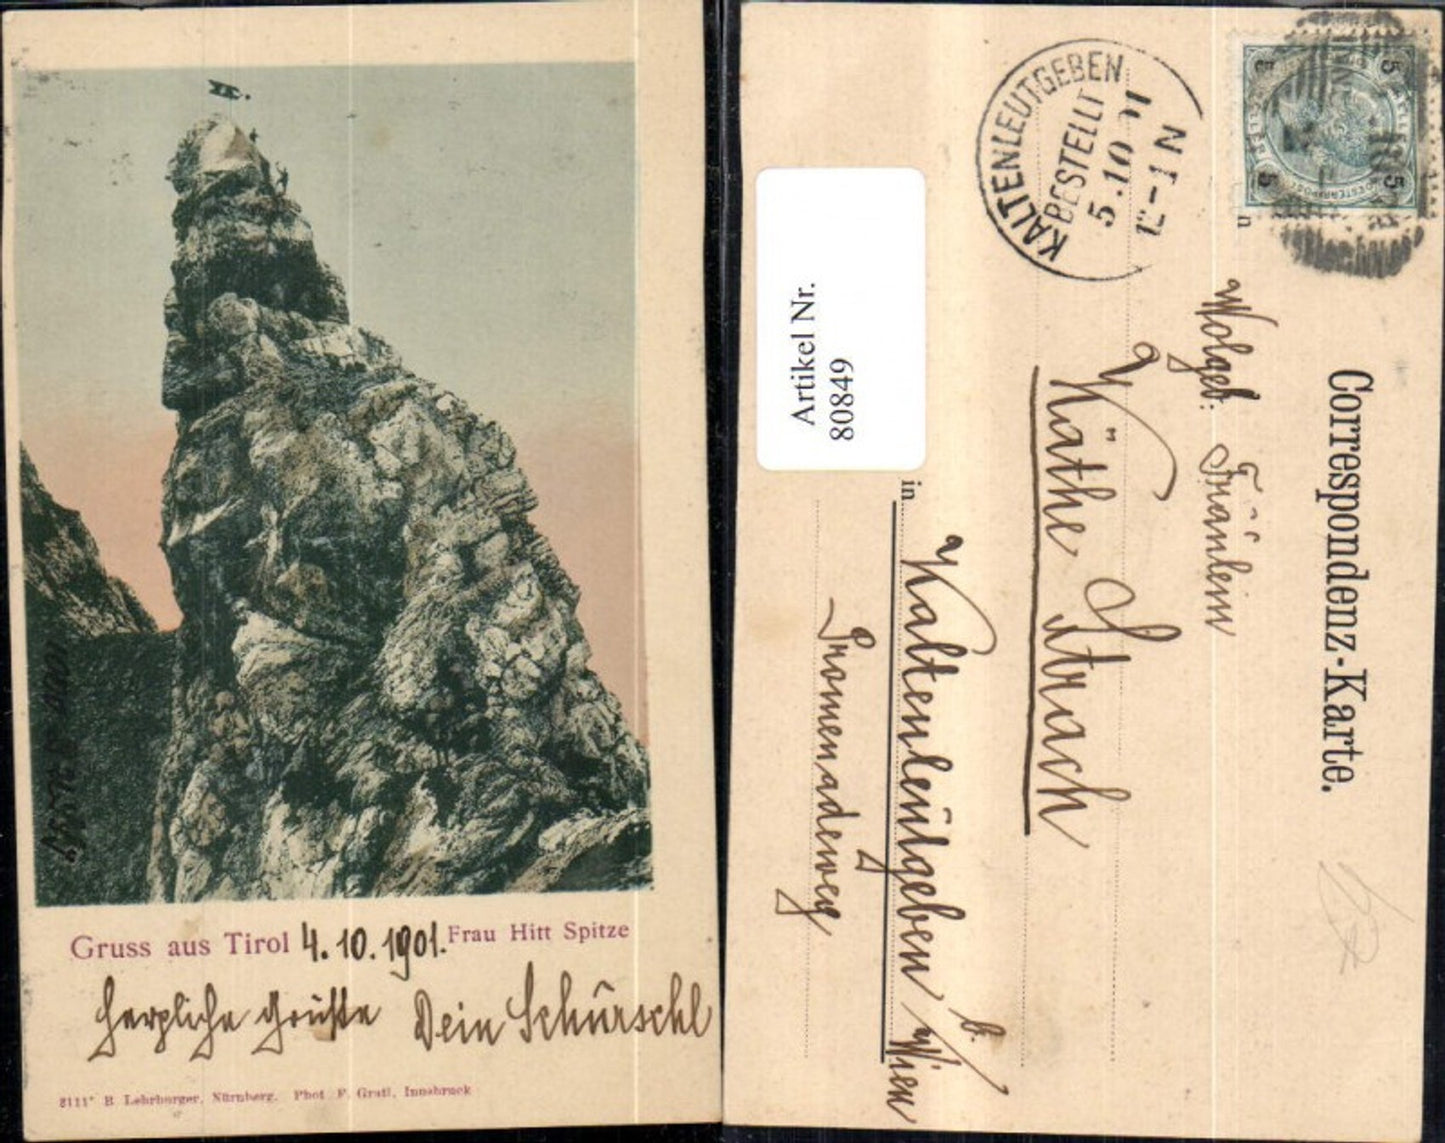 Gruss aus Tirol 4.10.1901. Frau Hitt Spitze
Herzliche Grüsse Dein Schürschl
8111* B. Lehrburger, Nürnberg. Phot F. Gratl, Innsbruck
Correspondenz-Karte.
Wolgeb. Fräulein
Käthe Strach
in Kaltenleutgeben b. Wien
Promenadeweg
KALTENLEUTGEBEN
BESTELLT
5.10 01
12-1 N
5 5
5 5
Artikel Nr.
80849